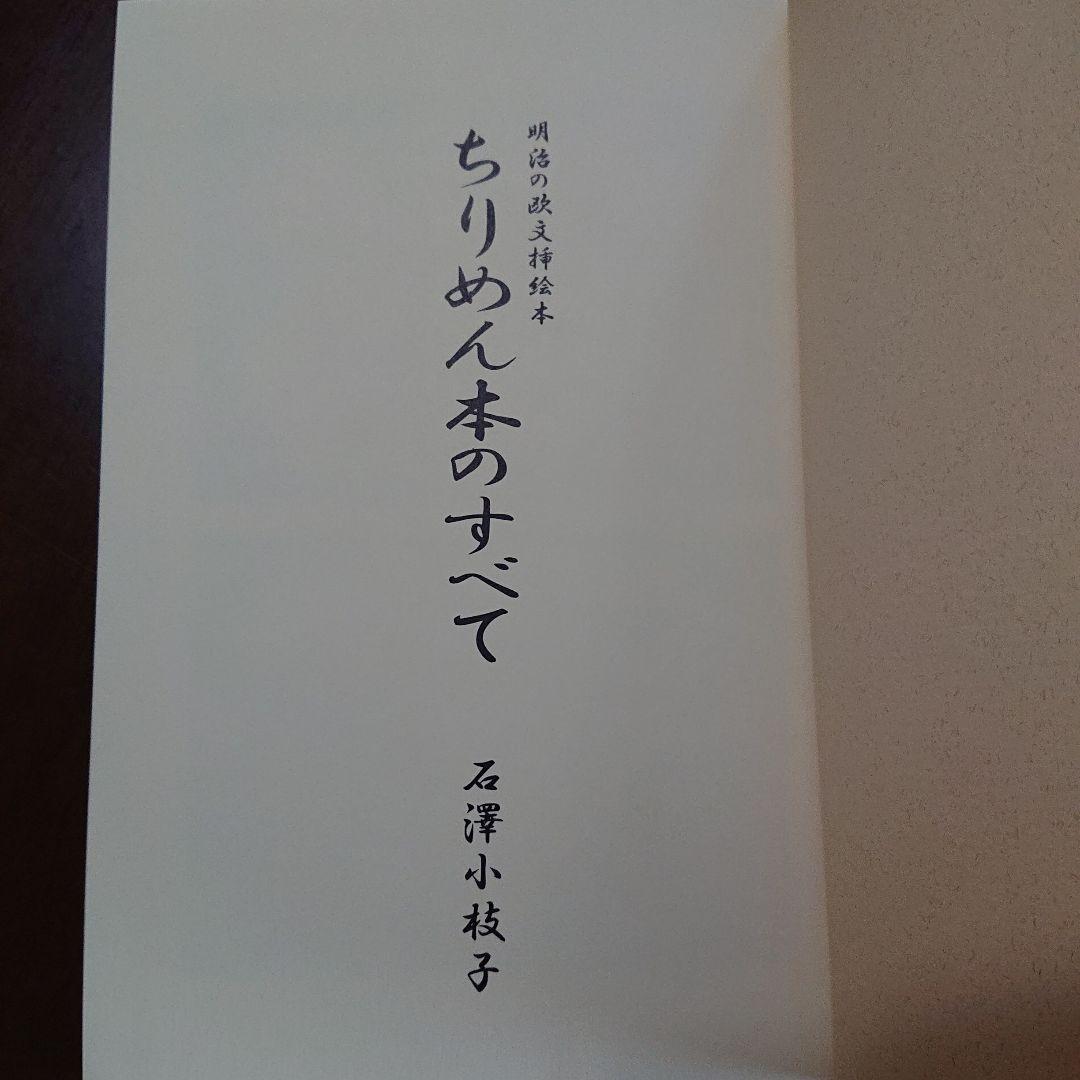 明治の欧文挿絵本
ちりめん本のすべて
石澤小枝子